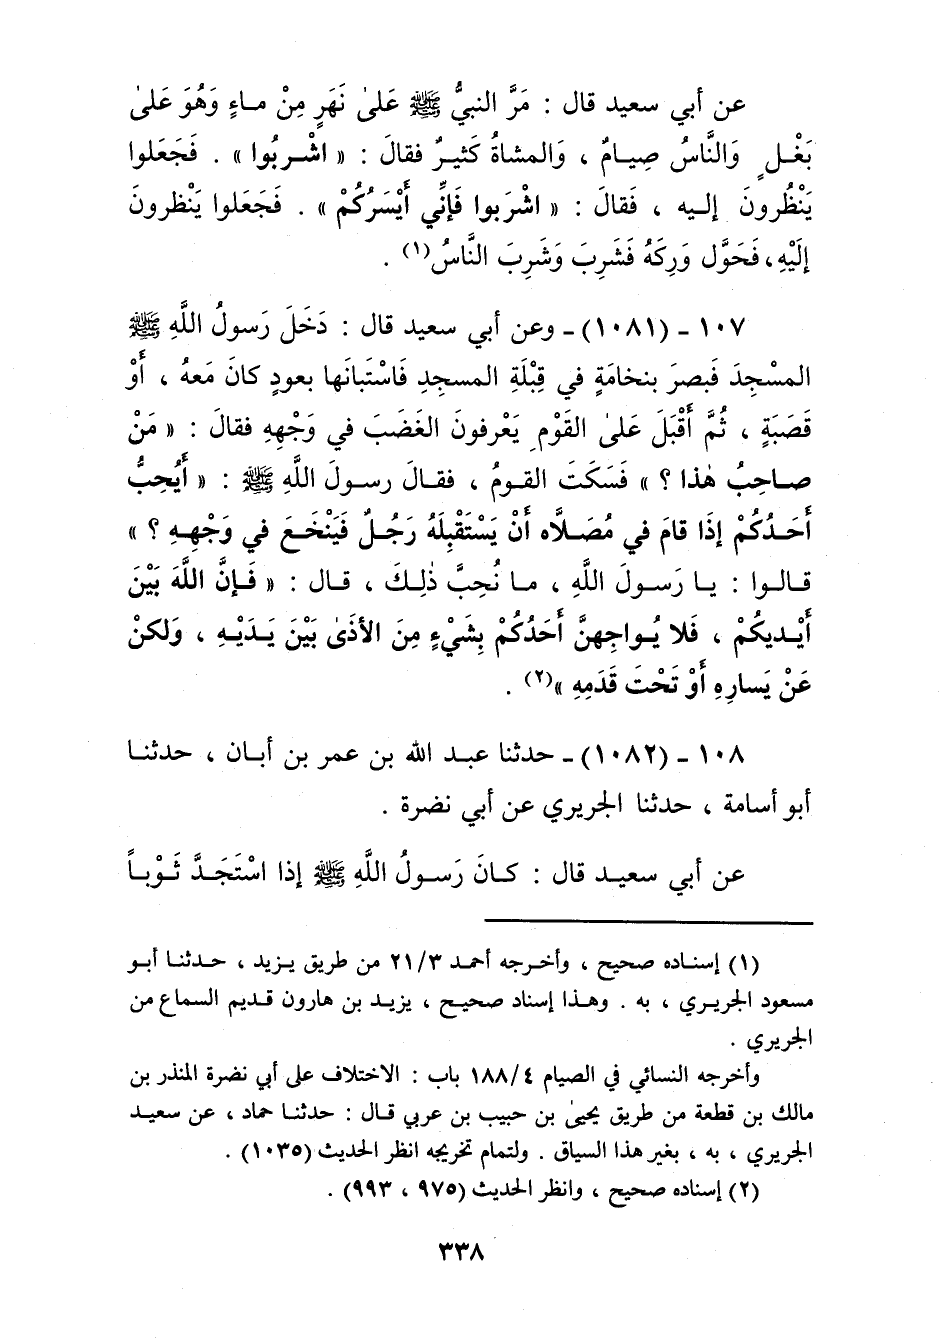 عن أبي سعيد قال : مَرَّ النبيُّ ﷺ عَلىٰ نَهَرٍ مِنْ مـاءٍ وَهُوَ عَلىٰ
بَغْـلٍ وَالنَّاسُ صِيـامٌ ، وَالمشاةُ كَثيـرٌ فقالَ : « اشْـربُوا » . فَجَعَلوا
يَنْظُرونَ إلـيه ، فَقالَ : « اشْرَبوا فَإنِّي أَيْسَرُكُمْ » . فَجَعَلوا يَنْظرونَ
إلَيْهِ، فَحَوَّل وَرِكَهُ فَشَرِبَ وَشَرِبَ النَّاسُ(١) .
١٠٧ - (١٠٨١) - وعن أبي سعيد قال : دَخَلَ رَسولُ اللَّهِ ﷺ
المسْجِدَ فَبصرَ بنخامَةٍ في قِبْلَةِ المسجِدِ فَاسْتَبانَها بعودٍ كانَ مَعهُ ، أَوْ
قَصَبَةٍ ، ثُمَّ أَقْبَلَ عَلىٰ القَوْمِ يَعْرفونَ الغَضَبَ في وَجْهِهِ فقالَ : « مَنْ
صـاحِبُ هٰذا ؟ » فَسَكَتَ القـومُ ، فقـالَ رسـولَ اللَّهِ ﷺ : « أَيُحِبُّ
أَحَـدُكُمْ إذَا قامَ في مُصَـلَّاه أَنْ يَسْتَقْبِلَهُ رَجُـلٌ فَيَنْخَـعَ في وَجْهِـهِ ؟ »
قـالـوا : يـا رَسـولَ اللَّهِ ، مـا نُحِبَّ ذٰلِـكَ ، قـال : « فَـإنَّ اللَّهَ بَيْنَ
أَيْـديكُمْ ، فَلا يُـواجِهنَّ أَحَدُكُمْ بِشَيْءٍ مِنَ الأذَىٰ بَيْنَ يَـدَيْـهِ ، وَلكنْ
عَنْ يَسارِهِ أَوْ تَحْتَ قَدَمِهِ »(٢) .
١٠٨ - (١٠٨٢) - حدثنا عبـد الله بن عمر بن أبـان ، حدثنـا
أبو أسامة ، حدثنا الجريري عن أبي نضرة .
عن أبي سعيـد قال : كـانَ رَسـولُ اللَّهِ ﷺ إذا اسْتَجَـدَّ ثَـوْبـاً
(١) إسنـاده صحيح ، وأخـرجه أحمـد ٢١/٣ من طريق يـزيد ، حـدثنـا أبـو
مسعود الجريـري ، به . وهـذا إسناد صحيـح ، يزيـد بن هارون قـديم السمـاع من
الجريري .
وأخرجه النسائي في الصيام ١٨٨/٤ باب : الاختلاف على أبي نضرة المنذر بن
مالك بن قطعة من طريق يحيىٰ بن حبيب بن عربي قـال : حدثنـا حماد ، عن سعيـد
الجريري ، به ، بغير هذا السياق . ولتمام تخريجه انظر الحديث (١٠٣٥) .
(٢) إسناده صحيح ، وانظر الحديث (٩٧٥ ، ٩٩٣) .
٣٣٨